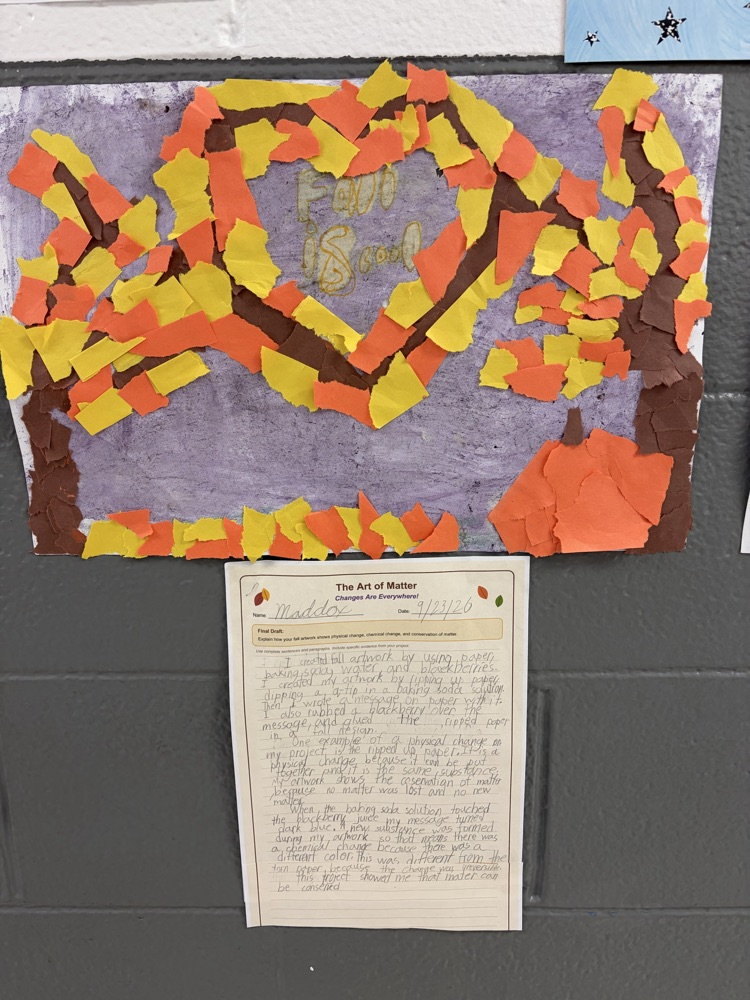 Fall
is cool
The Art of Matter
Changes Are Everywhere!
Name: Maddox Date: 9/23/26
Final Draft:
Explain how your fall artwork shows physical change, chemical change, and conservation of matter.
Use complete sentences and paragraphs. Include specific evidence from your project.
I created fall artwork by using paper,
baking soda, water, and blackberries.
I created my artwork by ripping up paper,
dipping a q-tip in a baking soda solution.
then I wrote a message on paper with it.
I also rubbed a blackberry over the
message, and glued the ripped paper
in a fall design.
One example of a physical change on
my project is the ripped up paper. It is a
physical change because it can be put
together and it is the same substance.
My artwork shows the coservation of matter
because no matter was lost and no new
matter
When the baking soda solution touched
the blackberry juice my message turned
dark blue. A new substance was formed
during my artwork so that means there was
a chemical change because there was a
different color. This was different from the
torn paper, because the change was
this project showed me that mater can
be conserved